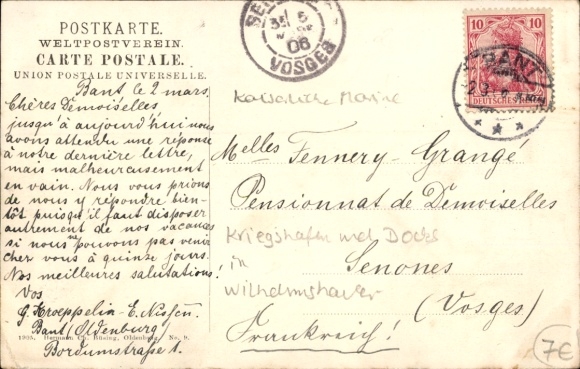 POSTKARTE.
WELTPOSTVEREIN.
CARTE POSTALE.
UNION POSTALE UNIVERSELLE.
Bant le 2 mars.
Chères Demoiselles
jusqu'à aujourd'hui nous
avons attendu une réponse
à notre dernière lettre,
mais malheureusement
en vain. Nous vous prions
de nous y répondre bien-
tôt puisqu'il faut disposer
autrement de nos vacances
si nous ne pouvons pas venir
cher vous à quinze jours.
Nos meilleures salutations!
Vos
G. Kroeppelin - E. Nissen.
Bant/Oldenburg/
Bordumstraße 1.
1905. Hermann Büsing, Oldenburg No. 9.
5
06
VOSGES
10 10
BANT
2.3
DEUTSCHES REICH
Kaiserliche Marine
Melles Fennery-Grangé
Pensionnat de Demoiselles
Kriegshafen und Docks
in
Senones
Wilhelmshaven
(Vosges)
Frankreich!
7€